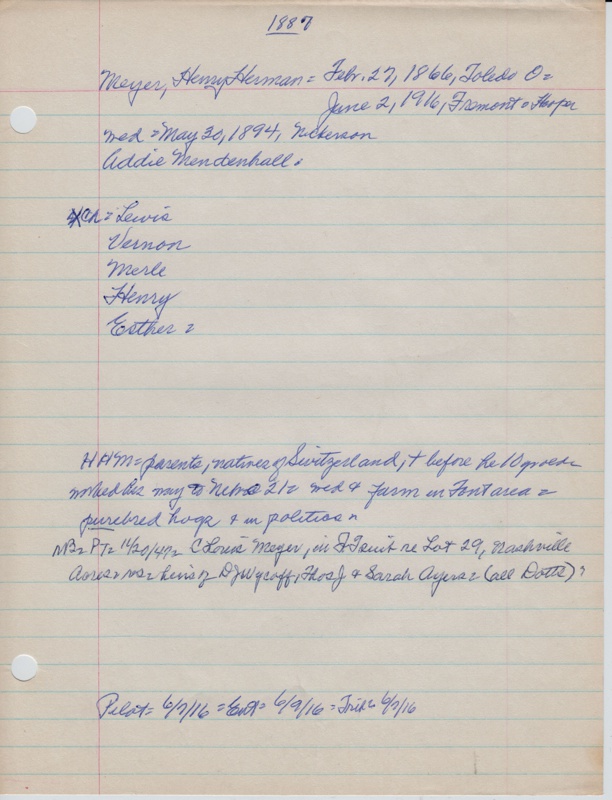 1887
Meyer, Henry Herman = Febr. 27, 1866, Toledo O =
June 2, 1916, Fremont = Harper
wed = May 30, 1894, Nickerson
Addie Mendenhall.
Ch = Lewis
Vernon
Merle
Henry
Esther =
HHM = parents, natives of Switzerland, + before he 10 
worked his way to Nebr 21 = wed & farm in Font area =
purebred hogs & in politics =
NB = PT = 11/20/47 = C Louis Meyer, in suit re Lot 29, Nashville
Acres = vs = heirs of D J Wycoff, Thos J & Sarah Ayers = (all Dotts)
Pilot = 6/7/16 = Ent = 6/9/16 = Trib = 6/2/16